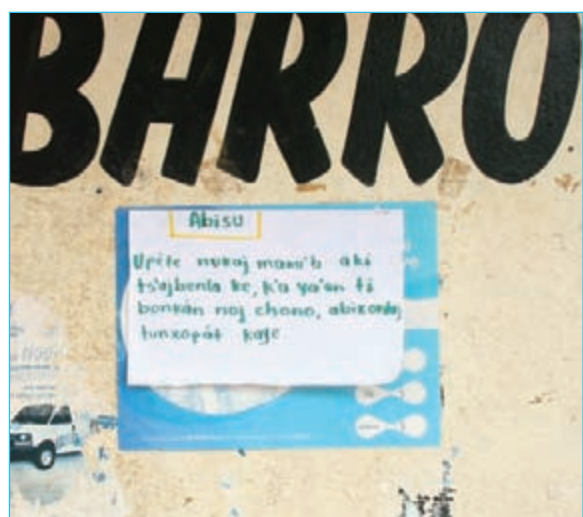 BARRO
Abisu
Upete nukaj maxu'b aki
ts'ajbenla ke, k'a ya'an ti
bonkán noj chono, abixonlaj
tunxopát kaje